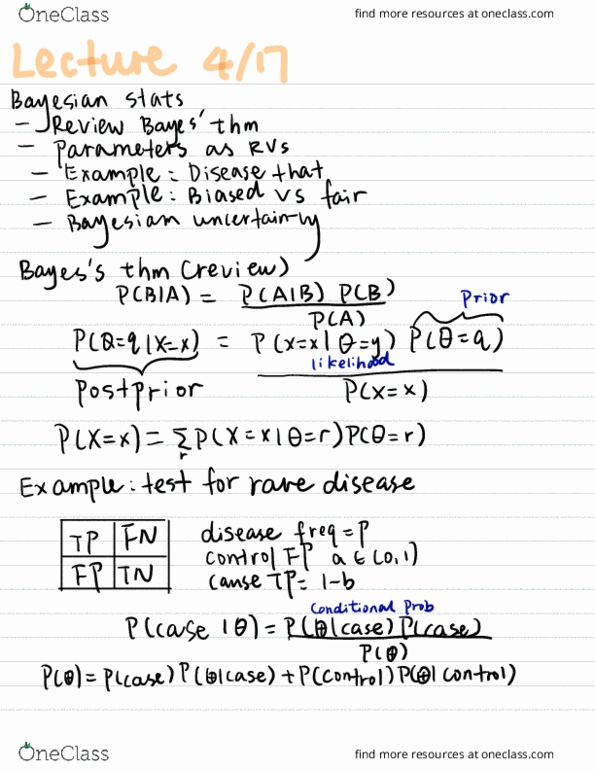 OneClass
find more resources at oneclass.com
Lecture 4/17
Bayesian stats
- Review Bayes' thm
- Parameters as RVs
- Example: Disease that
- Example: Biased vs fair
- Bayesian uncertainty
Bayes's thm (review)
P(B|A) = P(A|B) P(B) / P(A)
Prior
P(θ=q|X=x) = P(X=x|θ=y) P(θ=q) / P(X=x)
likelihood
Postprior
P(X=x) = Σr P(X=x|θ=r)P(θ=r)
Example: test for rare disease
TP FN
FP TN
disease freq = P
control FP a ∈ (0,1)
cause TP = 1-b
conditional Prob
P(case|θ) = P(⊕|case) P(case) / P(⊕)
P(⊕) = P(case) P(⊕|case) + P(control) P(⊕|control)
OneClass
find more resources at oneclass.com